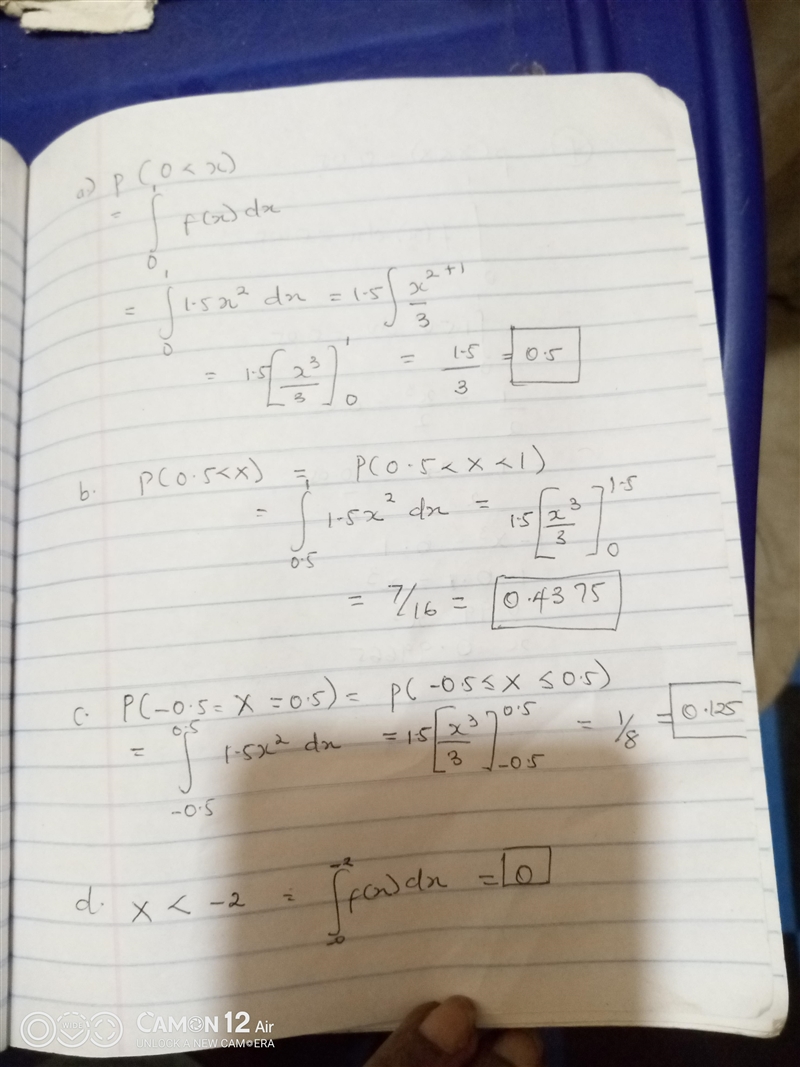 a) P(0 < x)
= ∫₀¹ f(x) dx
= ∫₀¹ 1.5x² dx = 1.5∫ x²⁺¹/3
= 1.5[x³/3]₀¹ = 1.5/3 = 0.5
b. P(0.5<X) = P(0.5<X<1)
= ∫₀.₅¹ 1.5x² dx = 1.5[x³/3]₀¹·⁵
= 7/16 = 0.4375
c. P(-0.5 = X = 0.5) = P(-0.5 ≤ X ≤ 0.5)
= ∫₋₀.₅⁰·⁵ 1.5x² dx = 1.5[x³/3]₋₀.₅⁰·⁵ = 1/8 = 0.125
d. X < -2 = ∫₋₀⁻² f(x) dx = 0
CAMON 12 Air
UNLOCK A NEW CAMERA